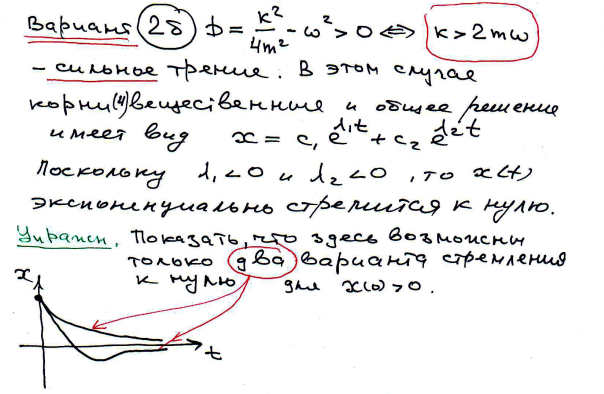 Вариант 2б D = k²/4m² - ω² > 0 ⇔ k > 2mω
- сильное трение. В этом случае
корни (4) вещественные и общее решение
имеет вид x = c₁ e^λ₁t + c₂ e^λ₂t
Поскольку λ₁ < 0 и λ₂ < 0, то x(t)
экспоненциально стремится к нулю.
Упражн. Показать, что здесь возможны
только два варианта стремления
к нулю для x(0) > 0.
x
t